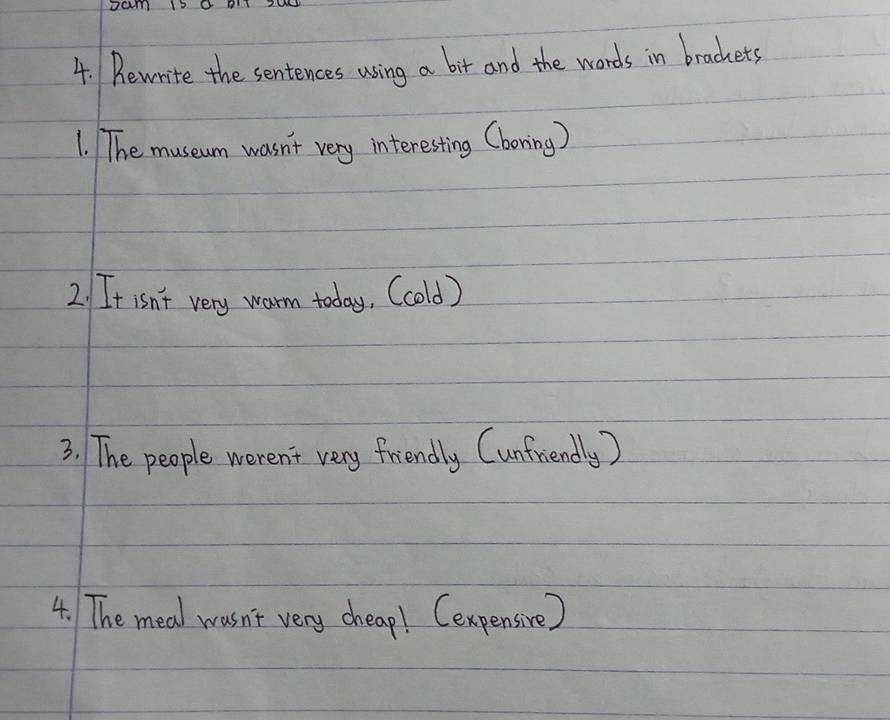 Sam is a bit sad
4. Rewrite the sentences using a bit and the words in brackets
1. The museum wasn't very interesting (boring)
2. It isn't very warm today. (cold)
3. The people weren't very friendly (unfriendly)
4. The meal wasn't very cheap! (expensive)